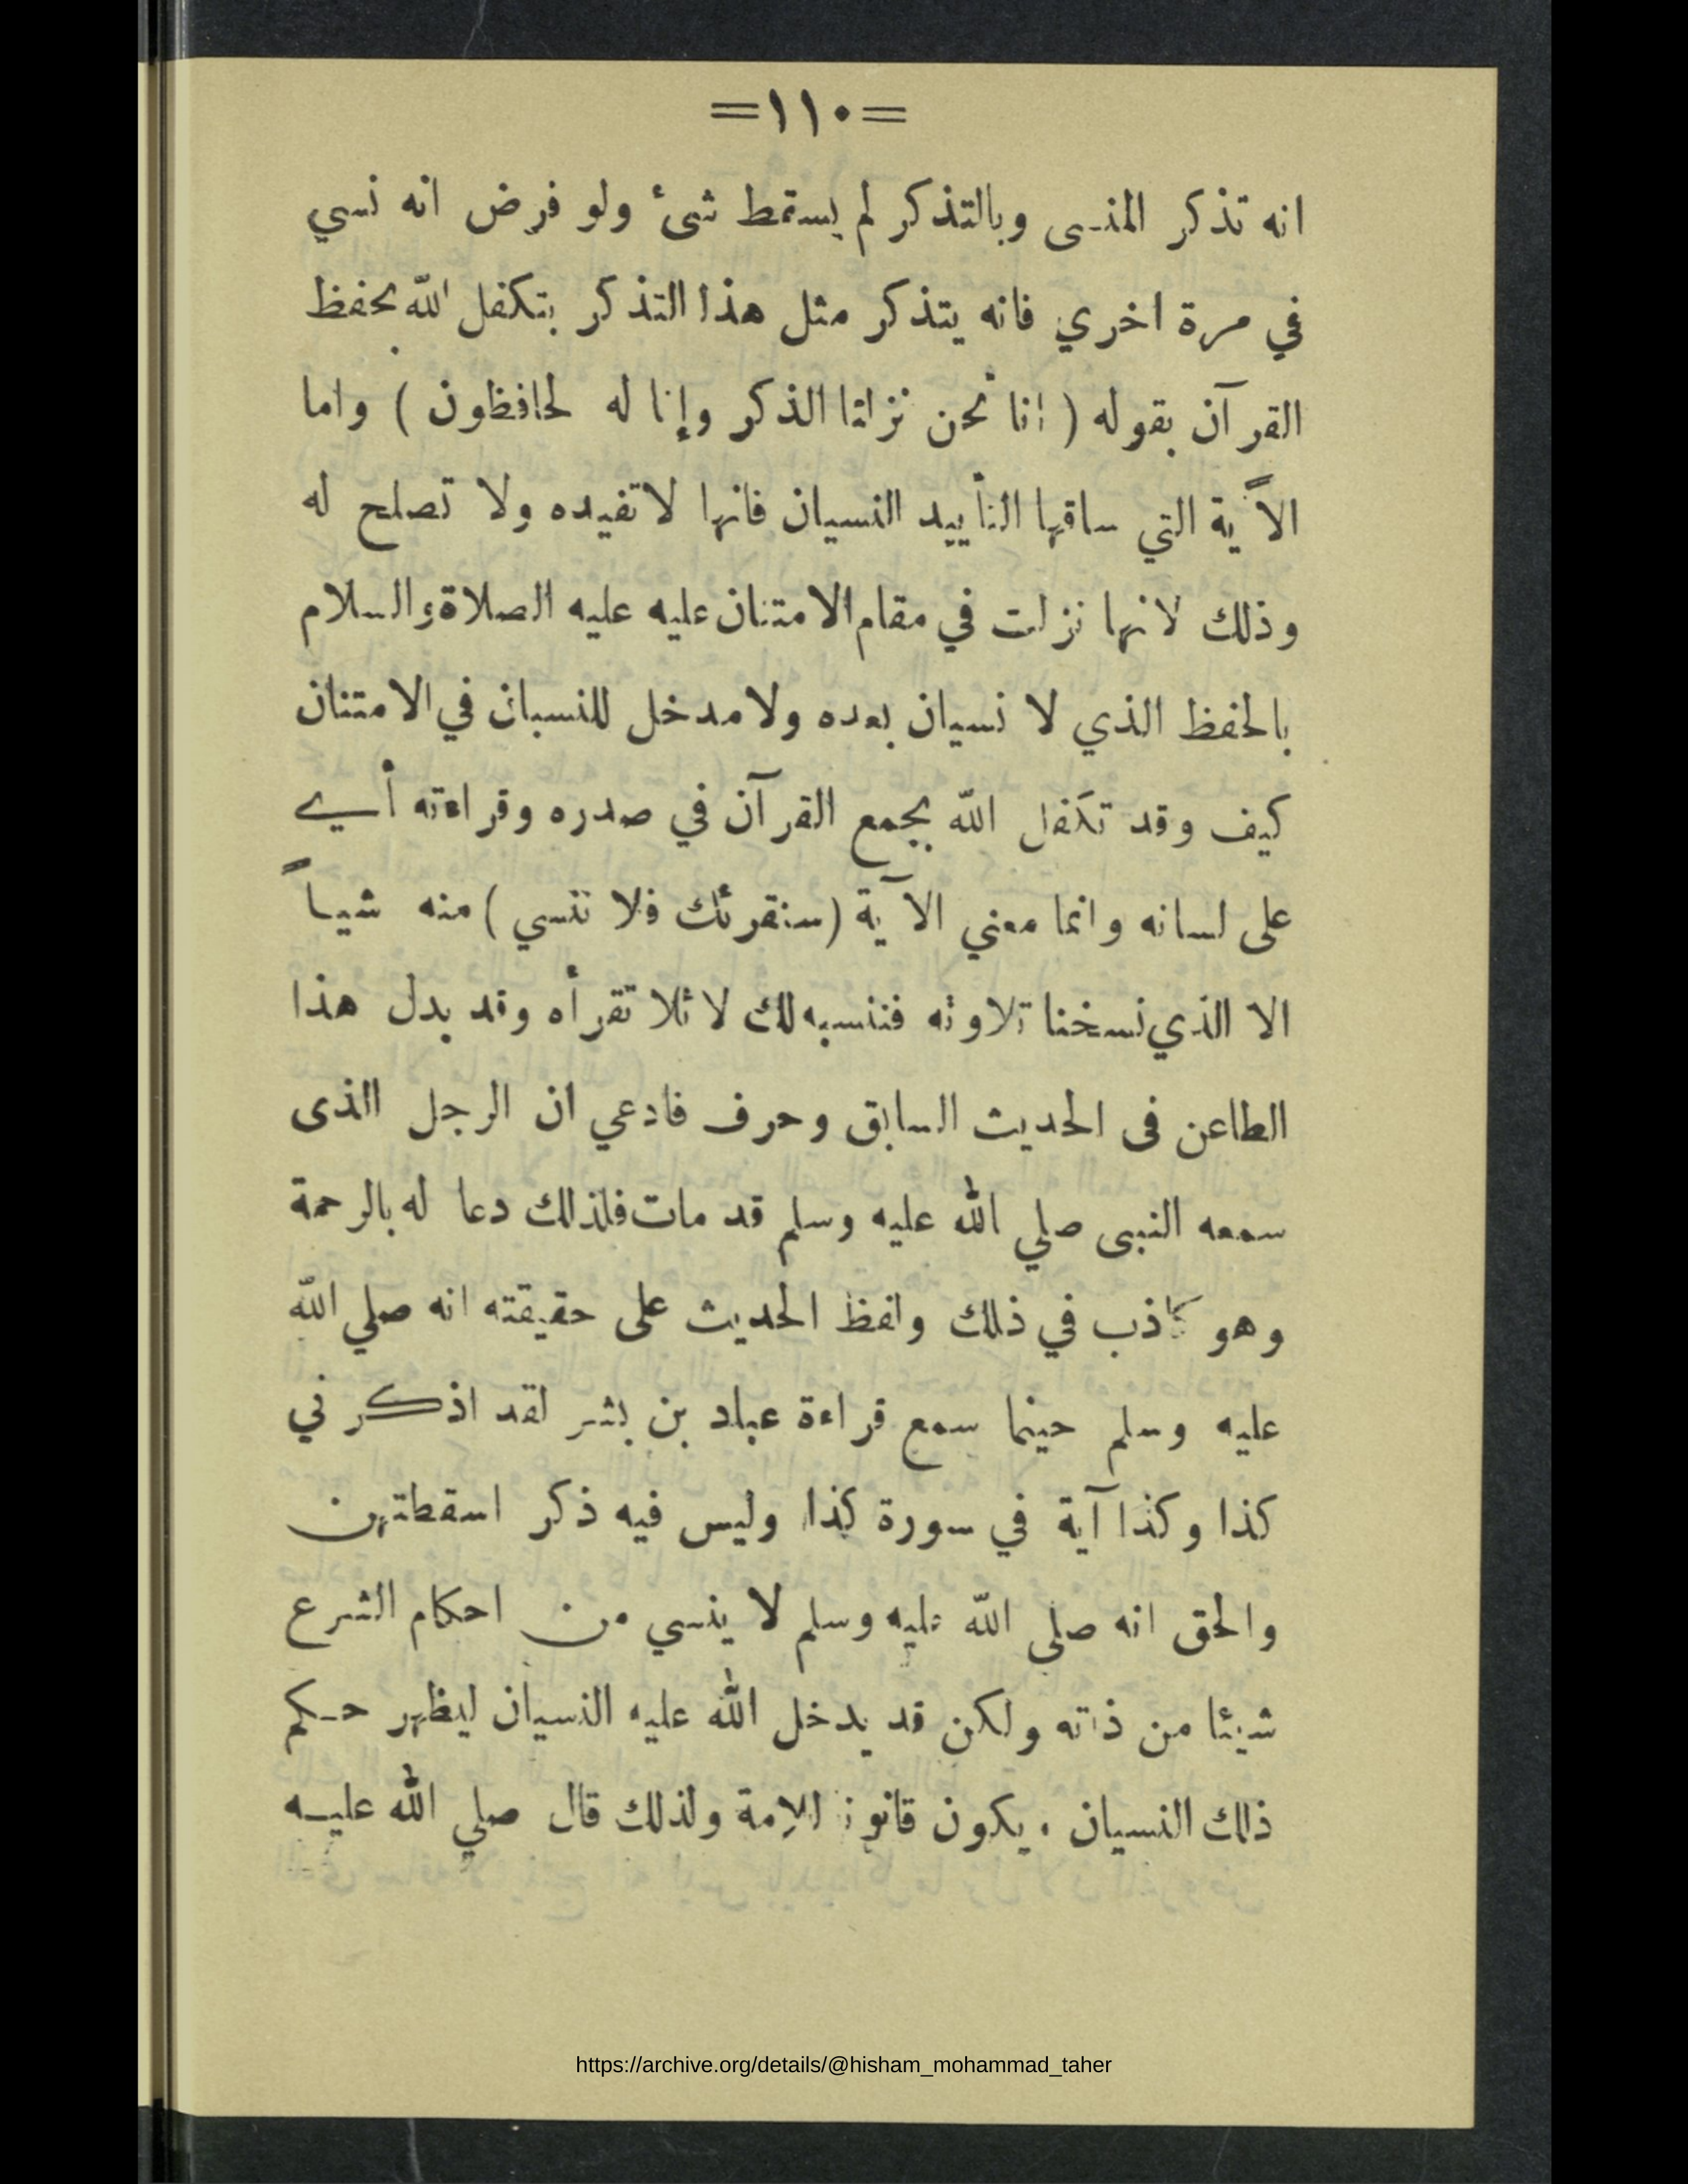 =١١٠=
انه تذكر المنسى وبالتذكر لم يسقط شئ ولو فرض انه نسي
في مرة اخري فانه يتذكر مثل هذا التذكر بتكفل الله بحفظ
القرآن بقوله ( انا نحن نزلنا الذكر وإنا له لحافظون ) واما
الآية التي ساقها لتأييد النسيان فانها لا تفيده ولا تصلح له
وذلك لانها نزلت في مقام الامتنان عليه عليه الصلاة والسلام
بالحفظ الذي لا نسيان بعده ولا مدخل للنسيان في الامتنان
كيف وقد تكفل الله بجمع القرآن في صدره وقراءته أي
على لسانه وانما معني الآية (سنقرئك فلا تنسي) منه شيأً
الا الذي نسخنا تلاوته فننسيه لك لا ئلا تقرأه وقد بدل هذا
الطاعن فى الحديث السابق وحرف فادعي ان الرجل الذى
سمعه النبى صلي الله عليه وسلم قد مات فلذلك دعا له بالرحمة
وهو كاذب في ذلك ولفظ الحديث على حقيقته انه صلي الله
عليه وسلم حينما سمع قراءة عباد بن بشر لقد اذكرني
كذا وكذا آية في سورة كذا وليس فيه ذكر اسقطتهن
والحق انه صلى الله عليه وسلم لا ينسي من احكام الشرع
شيئا من ذاته ولكن قد يدخل الله عليه النسيان ليظهر حكم
ذلك النسيان . يكون قانونا للامة ولذلك قال صلي الله عليه
https://archive.org/details/@hisham_mohammad_taher